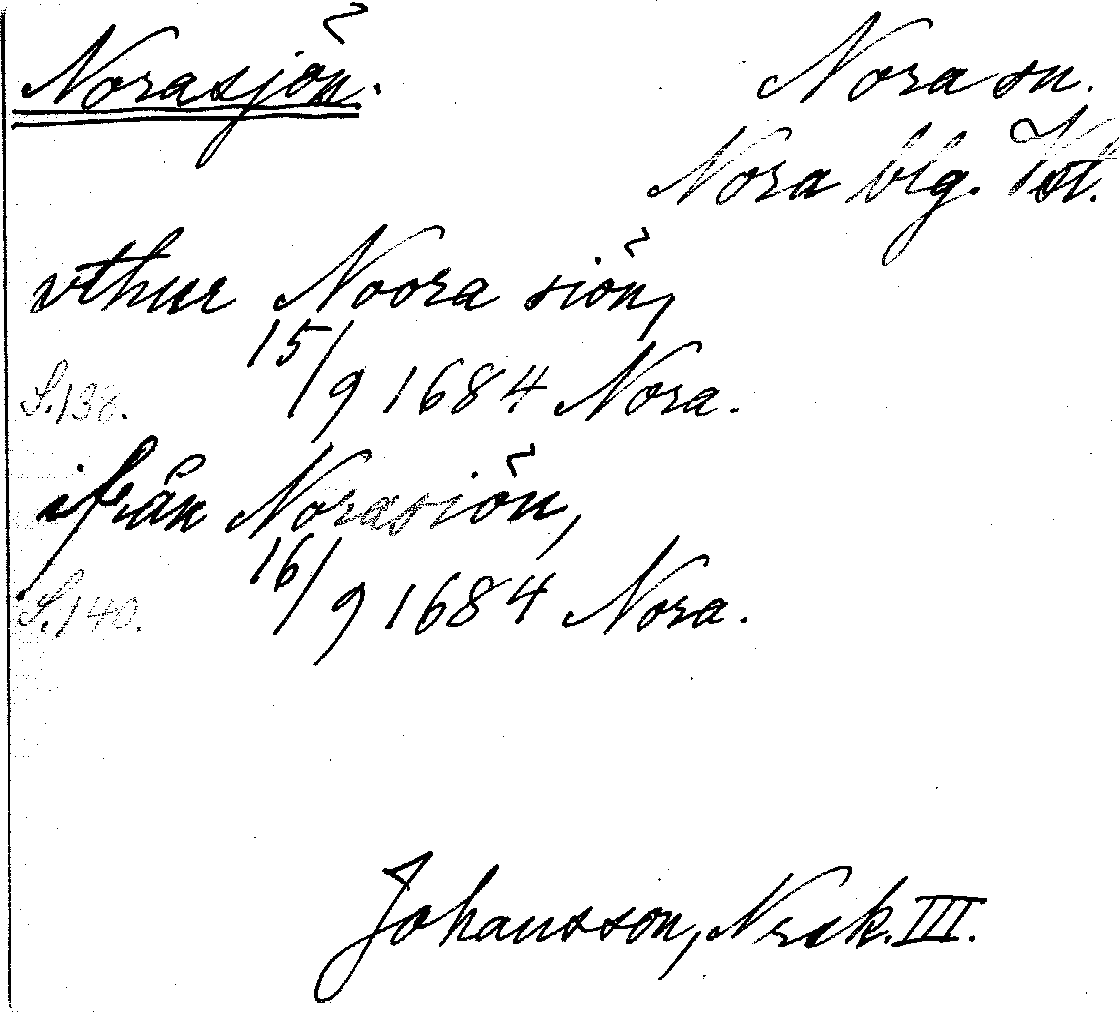 Norasjön.
Nora sn.
Nora blg. Vstl.
vthur Noora siön,
S.138. 15/9 1684 Nora.
ifrån Norasiön,
S.140. 16/9 1684 Nora.
Johansson, Nrsk. III.